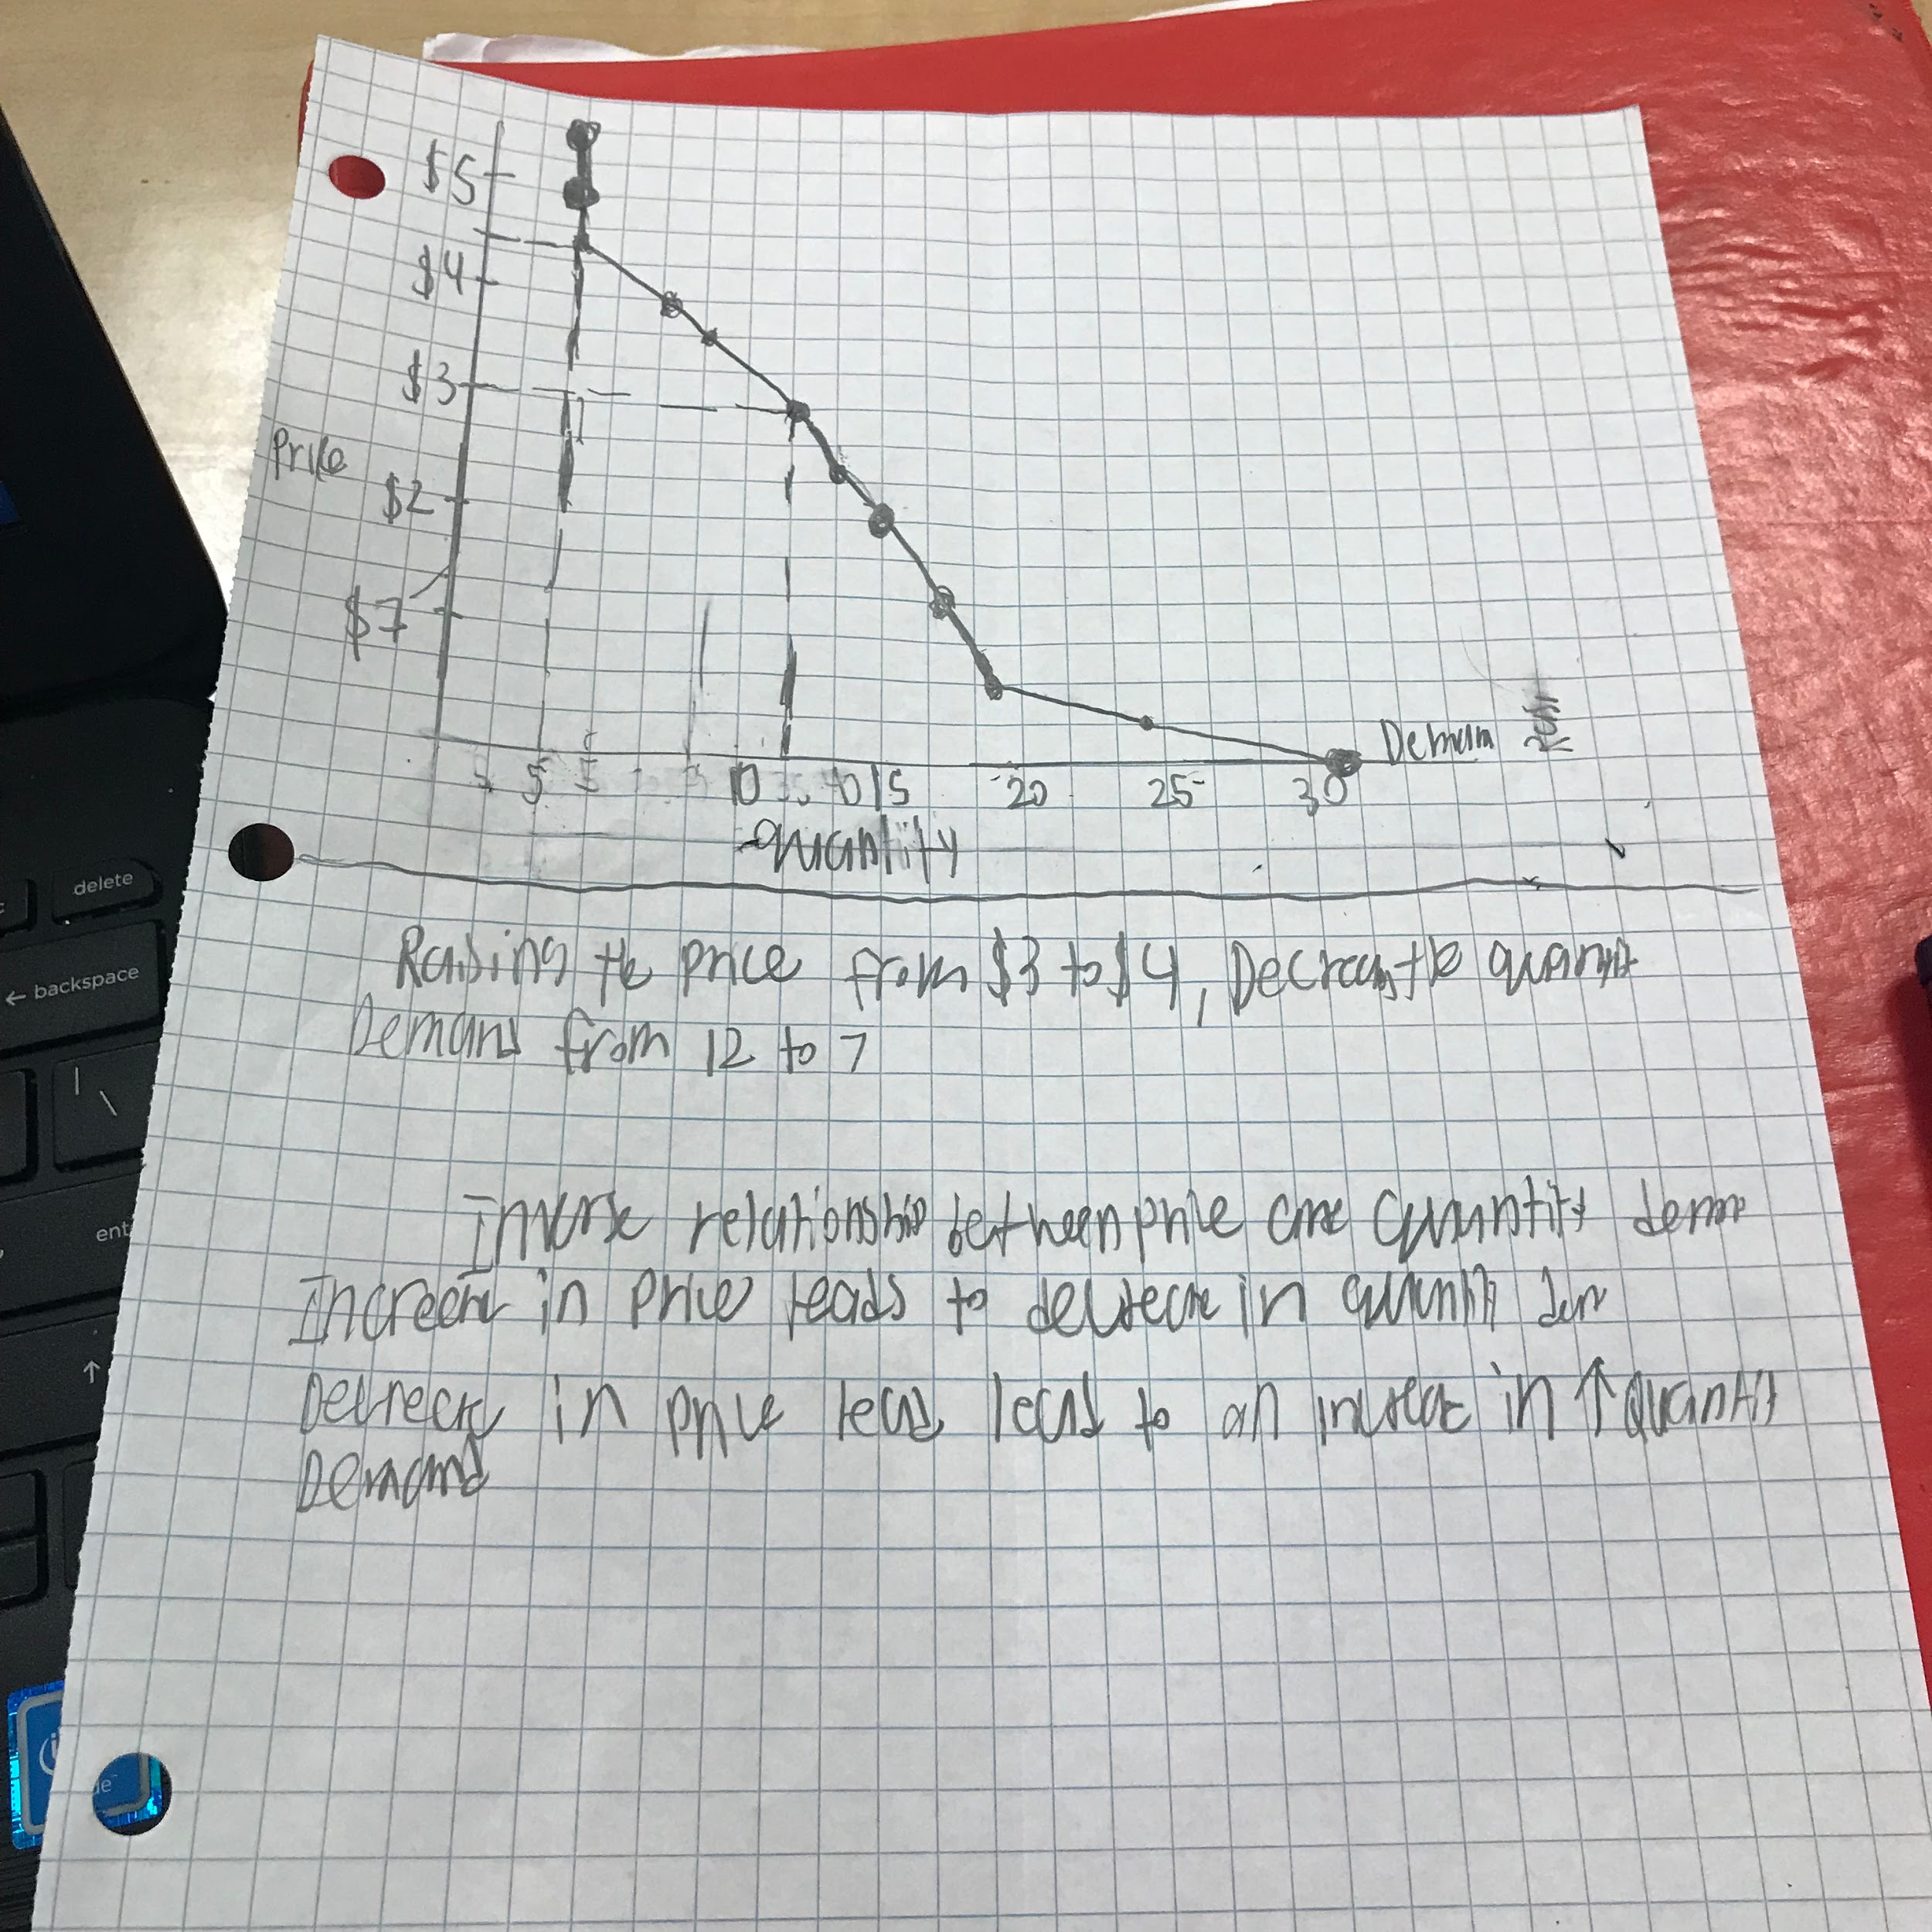 $5
$4
$3
Price
$2
$7
5 10 15 20 25 30
Quantity
Raising the price from $3 to $4, Decreas the quantit
Demand from 12 to 7
Inverse relationship between price and quantity dem
Increase in price leads to decrease in quantity dem
Decrease in price lead lead to an increase in ↑ quantit
Demand
delete
← backspace
\
ent
↑